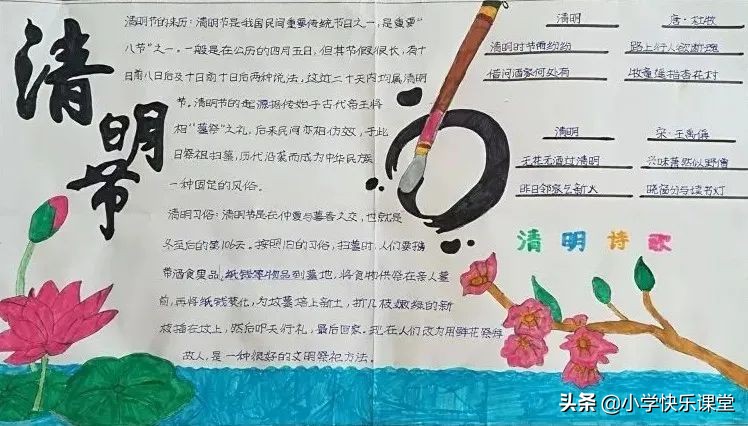 清明节
清明节的来历：清明节是我国民间重要传统节日之一，是重要“
八节”之一。一般是在公历的四月五日，但其节假很长，有十
日前八日后及十日前十日后两种说法，这近二十天内均属清明
节。清明节的起源据传始于古代帝王将
相“墓祭”之礼，后来民间亦相仿效，于此
日祭祖扫墓，历代沿袭而成为中华民族
一种固定的风俗。
清明习俗：清明节是在仲春与暮春之交，也就是
冬至后的第106天。按照旧的习俗，扫墓时，人们要携
带酒食果品，纸钱等物品到墓地，将食物供祭在亲人墓
前，再将纸钱焚化，为坟墓培上新土，折几枝嫩绿的新
枝插在坟上，然后叩头行礼，最后回家。现在人们改为用鲜花祭拜
故人，是一种很好的文明祭祀方法。
清明 唐·杜牧
清明时节雨纷纷 路上行人欲断魂
借问酒家何处有 牧童遥指杏花村
清明 宋·王禹偁
无花无酒过清明 兴味萧然似野僧
昨日邻家乞新火 晓窗分与读书灯
清明诗歌
头条 @小学快乐课堂